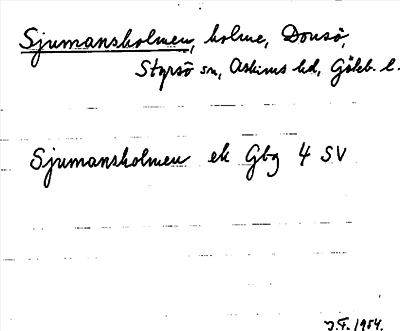 Sjumansholmen, holme, Donsö,
Styrsö sn, Askims hd, Göteb. l.
Sjumansholmen ek Gbg 4 SV
J.F. 1954.